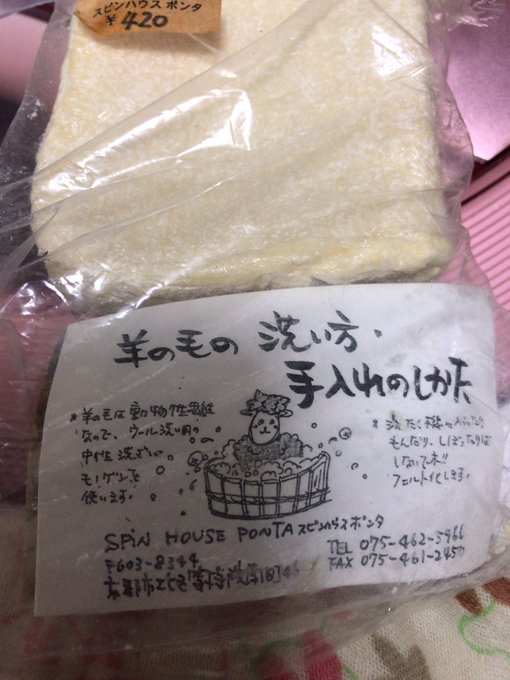 スピンハウス ポンタ
¥420
羊の毛の 洗い方、
手入れのしかた
* 羊の毛は動物性繊維
なので、ウール洗い用の
中性洗ざい
モノゲンを
使います。
* 洗たく機
もんだり、しぼったりは
しないで下さい!!
フェルト化します。
SPIN HOUSE PONTA スピンハウス ポンタ
〒603-8344
京都市北区等持院南町46
TEL 075-462-5966
FAX 075-461-2457